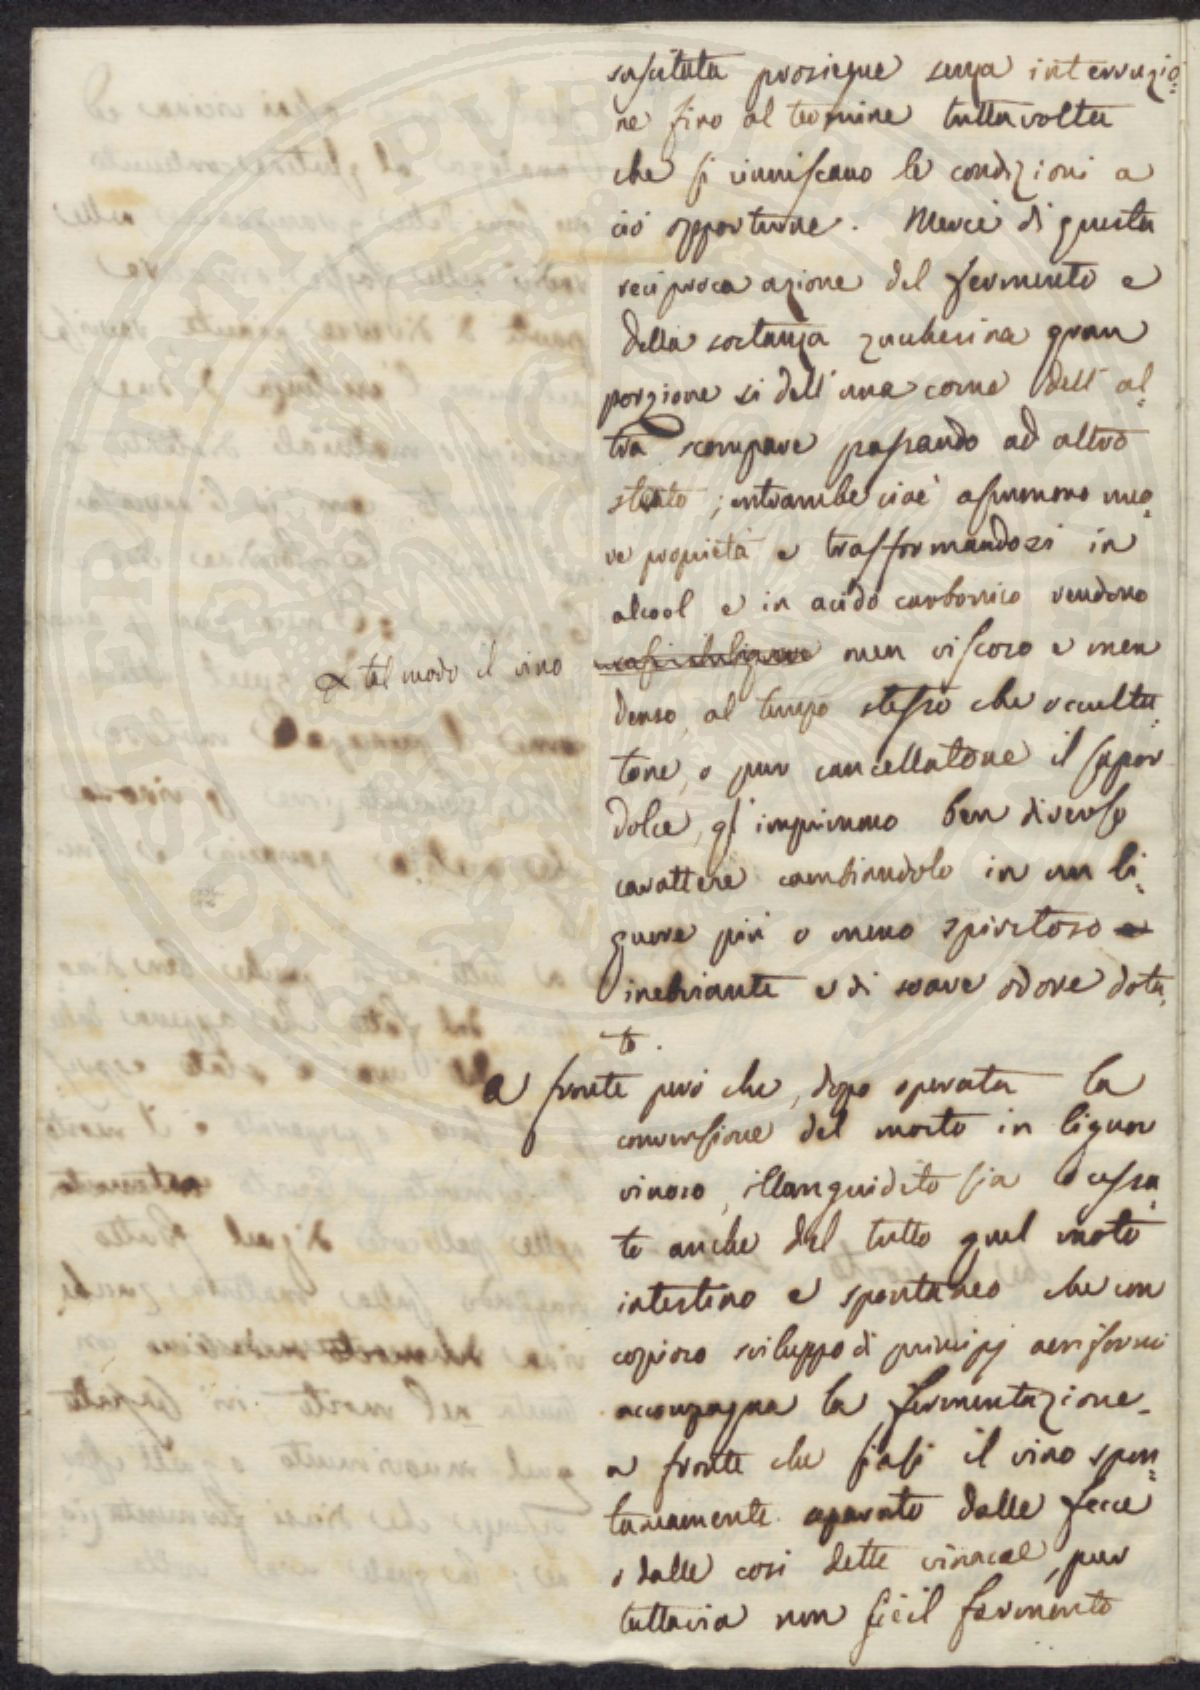 suscitata prosiegue senza interruzio=
ne fino al termine tuttavolta
che si riuniscano le condizioni a
ciò opportune. Mercè di questa
reciproca azione del fermento e
della sostanza zuccherina gran
porzione si dell'una come dell'al=
tra scompare passando ad altro
stato; entrambe cioè assumono nuo=
ve propietà e trasformandosi in
alcool e in acido carbonico rendono
a tal modo il vino
men viscoso e men
denso, al tempo stesso che occulta=
tone, o pur cancellatone il sapor
dolce, gl'imprimono ben diverso
carattere cambiandolo in un li=
quore più o meno spiritoso
inebriante e di soave odore dota=
to.
A fronte però che, dopo operata la
conversione del mosto in liquor
vinoso, illanguidito sia o cessa=
to anche del tutto quel moto
intestino e spontaneo che con
copioso sviluppo di principj aeriformi
accompagna la fermentazione.
a fronte che siasi il vino spon=
taneamente separato dalle fecce
o dalle così dette vinacce, pur
tuttavia non si è il fermento